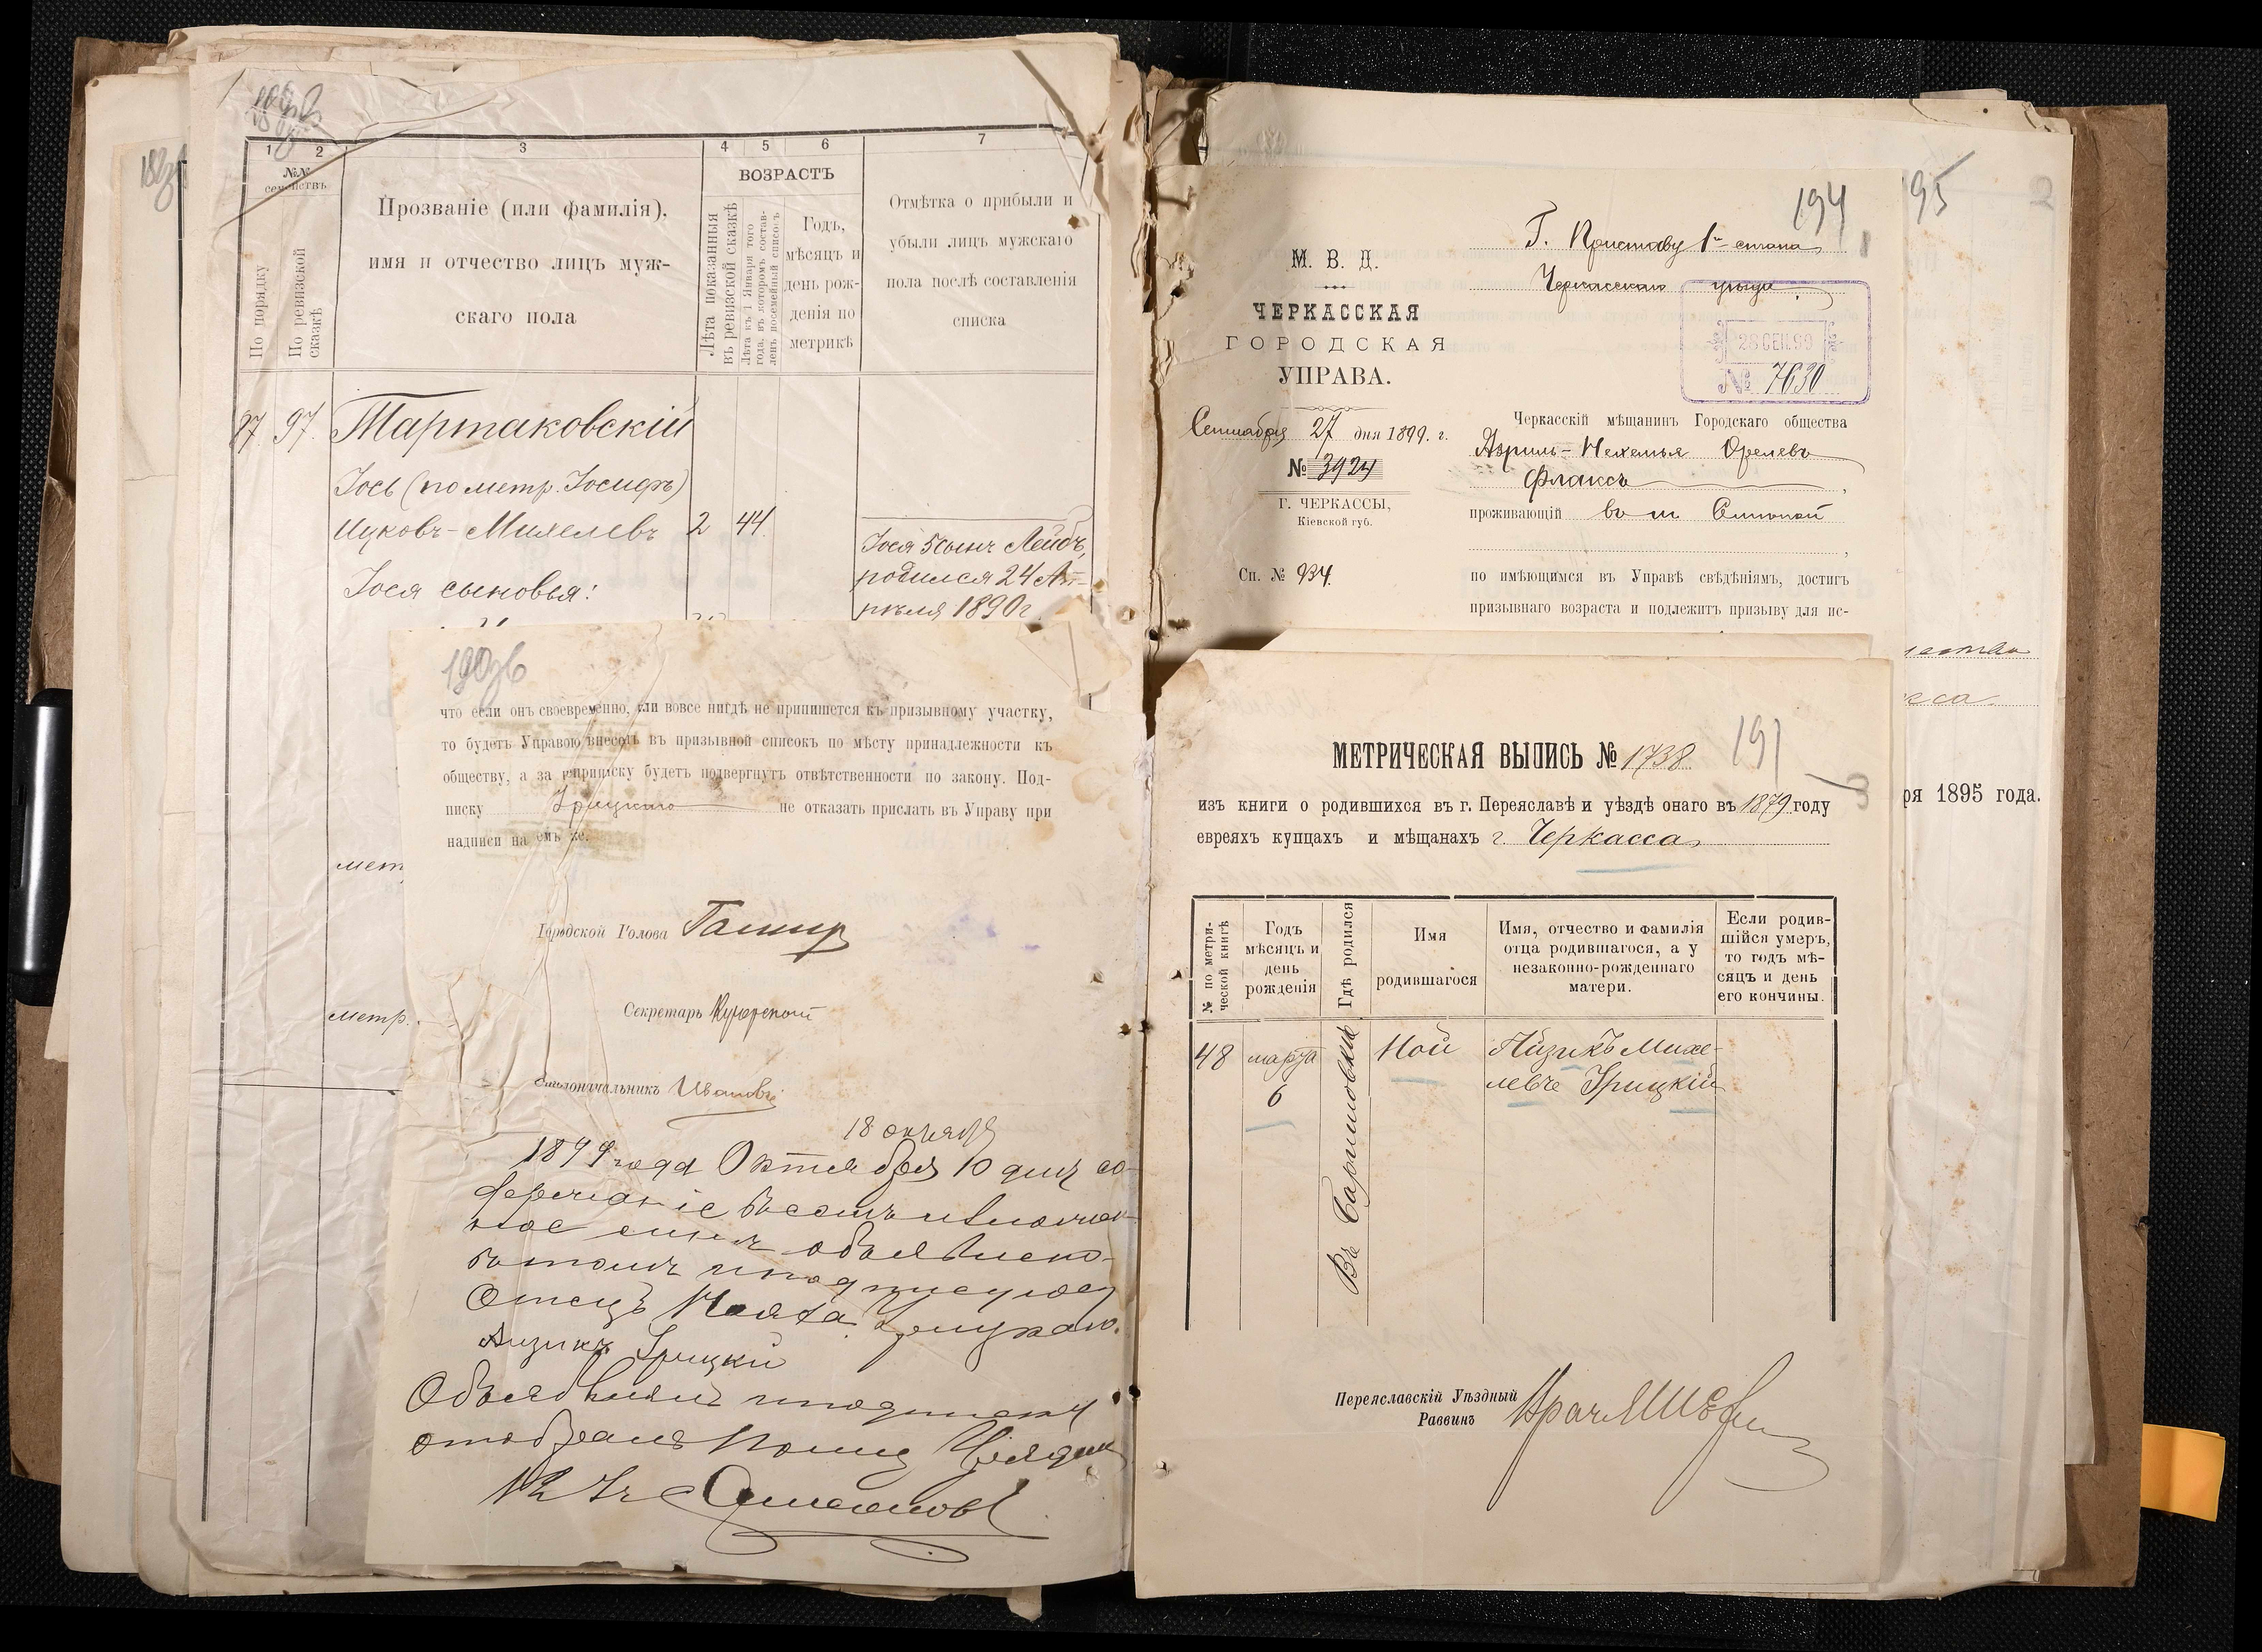 1 2 3 4 5 6 7
№№ семействъ
По порядку
По ревизской сказкѣ
Прозваніе (или фамилія),
имя и отчество лицъ муж-
скаго пола
ВОЗРАСТЪ
Лѣта показанныя
въ ревизской сказкѣ
Лѣта къ 1 Января того
года, въ которомъ состав-
ленъ посемейный списокъ
Годъ,
мѣсяцъ и
день рож-
денія по
метрикѣ
Отмѣтка о прибыли и
убыли лицъ мужскаго
пола послѣ составленія
списка
87 97. Тартаковскій
Іось (по метр. Іосифъ)
Ицковъ-Михелевъ 2 44
Іося сыновья:
Іося 5 сынъ Лейбъ,
родился 24 Ап-
рѣля 1890 г.
мет
метр.
190
что если онъ своевременно, или вовсе нигдѣ не припишется къ призывному участку,
то будетъ Управою внесенъ въ призывной списокъ по мѣсту принадлежности къ
обществу, а за неприписку будетъ подвергнутъ отвѣтственности по закону. Под-
писку Урицкаго не отказать прислать въ Управу при
надписи на семъ же.
Городской Голова
Секретарь
Столоначальникъ Ивановъ
18 октября
1899 года Октября 10 дня со-
держаніе
объявлено
въ томъ и подписуюсь
Отецъ Ноаха Урицкаго.
Айзикъ Урицкій
Объявилъ и подписку
отобралъ Полиц Урядн
194
Г. Приставу 1го стана
Черкасскаго уѣзда
М. В. Д.
ЧЕРКАССКАЯ
ГОРОДСКАЯ
УПРАВА.
28 СЕН. 99
№ 7630
Сентября 27 дня 1899. г.
№ 3924
Г. ЧЕРКАССЫ,
Кіевской губ.
Сп. № 934.
Черкасскій мѣщанинъ Городскаго общества
Азриль-Нехемья Орелевъ
Флаксъ,
проживающій въ м
по имѣющимся въ Управѣ свѣдѣніямъ, достигъ
призывнаго возраста и подлежитъ призыву для ис-
191
МЕТРИЧЕСКАЯ ВЫПИСЬ № 1738
изъ книги о родившихся въ г. Переяславѣ и уѣздѣ онаго въ 1879 году
евреяхъ купцахъ и мѣщанахъ г. Черкасса
№ по метри-
ческой книгѣ
Годъ
мѣсяцъ и
день
рожденія
Гдѣ родился
Имя
родившагося
Имя, отчество и фамилія
отца родившагося, а у
незаконно-рожденнаго
матери.
Если родив-
шійся умеръ,
то годъ мѣ-
сяцъ и день
его кончины.
48 марта
6
Въ
Ной
Айзикъ Михе-
левъ Урицкій
Переяславскій Уѣздный
Раввинъ
95
2
ря 1895 года.